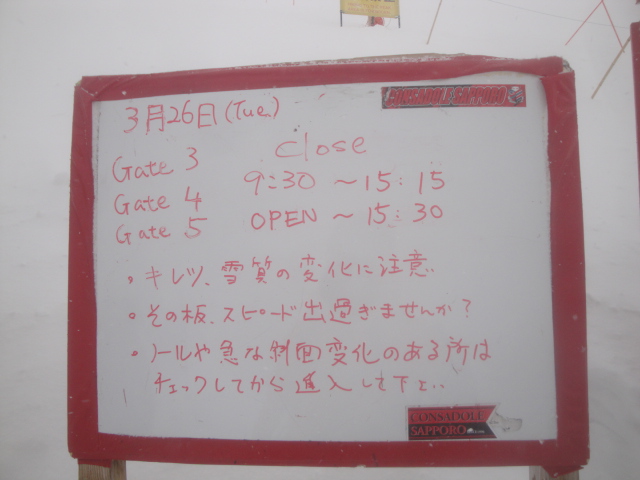 CONSADOLE SAPPORO
3月26日(Tue)
Gate 3 Close
Gate 4 9:30 ~ 15:15
Gate 5 OPEN ~ 15:30
・キレツ、雪質の変化に注意
・その板、スピード出過ぎませんか?
・ノールや急な斜面変化のある所は
チェックしてから進入して下さい
CONSADOLE
SAPPORO